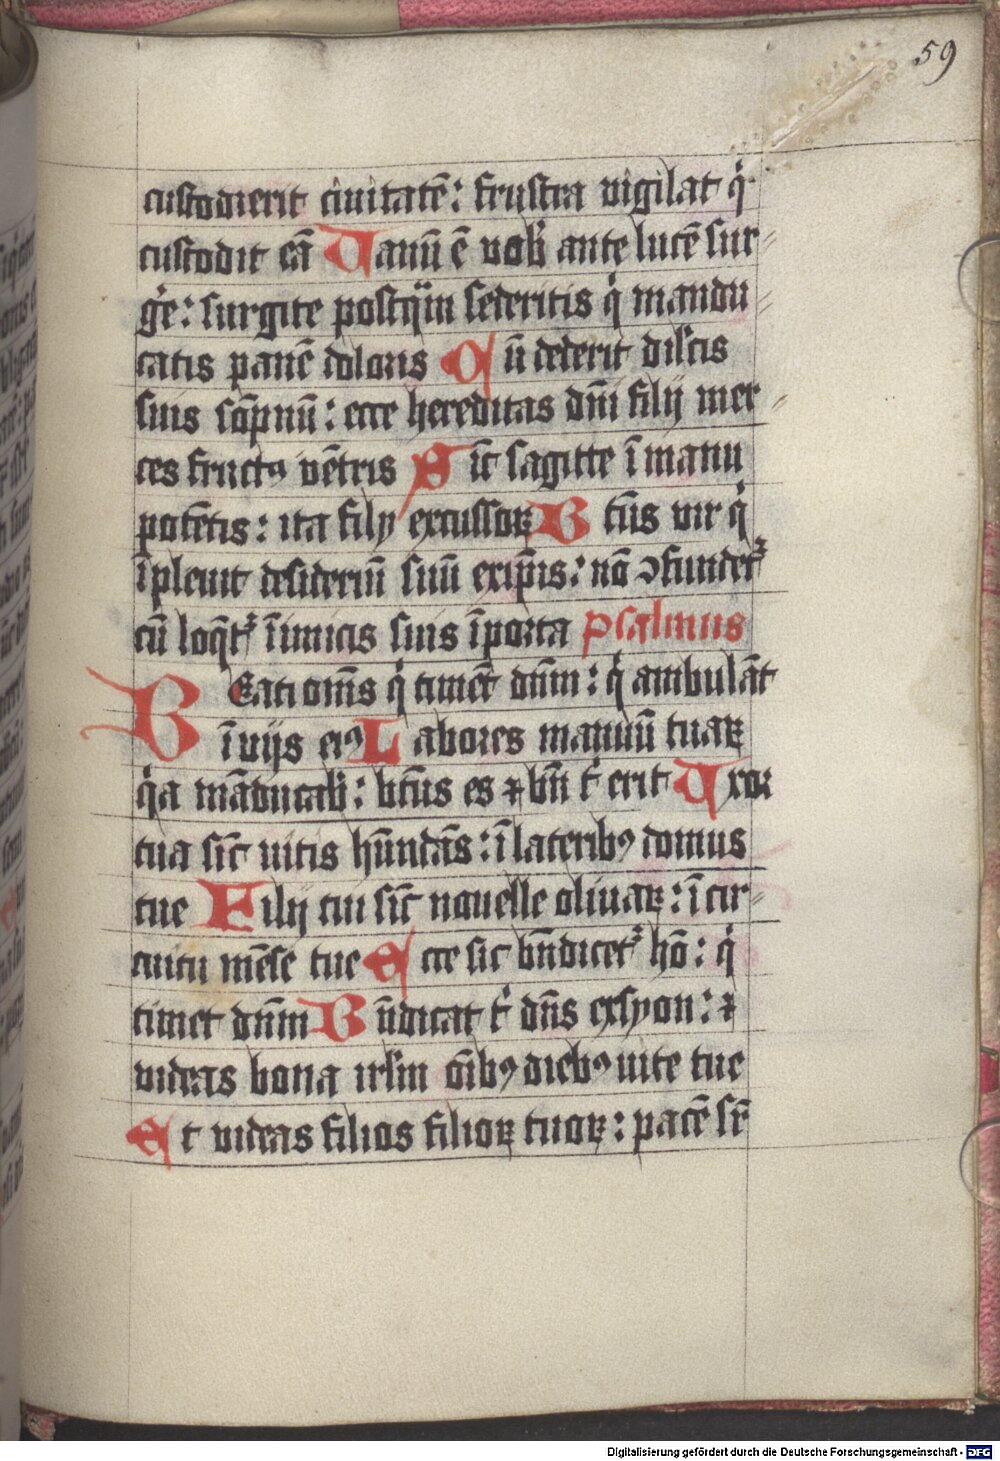 59
custodierit ciuitatē: frustra vigilat q̇
custodit eā Uanū ē vob̄ ante lucē sur⸗
gē: surgite postq̄m sederitis q̇ mandu⸗
catis panē doloris Cū dederit dilcīs
suis sōpnū: ecce hereditas dn̄i filij mer⸗
ces fructꝰ vētris Sic̄ sagitte ī manu
potētis: ita filij excussoꝝ Btūs vir q̇
īpleuit desideriū suū exip̄īs: nō ↄfundet᷑
cū loq̄t᷑ īimicis suis īporta psalmus
BEati om̄s q̇ timēt dn̄m: q̇ ambulāt
ī vijs eiꝰ Labores manuū tuaꝝ
q̇a māducab̄: bt̄us es ⁊ bn̄ t̄ erit Uxor
tua sic̄ uitis hūndās: ī lateribꝰ domus
tue Filij tui sic̄ nouelle oliuaꝝ: ī cir⸗
cuitu mēse tue Ecce sic bn̄dicet᷑ hō: q̇
timet dn̄m Bn̄dicat t̄ dn̄s exsyon: ⁊
videas bona irlm̄ oīb̄ꝰ diebꝰ uite tue
Et videas filios filioꝝ tuoꝝ: pacē sr̄
Digitalisierung gefördert durch die Deutsche Forschungsgemeinschaft - DFG